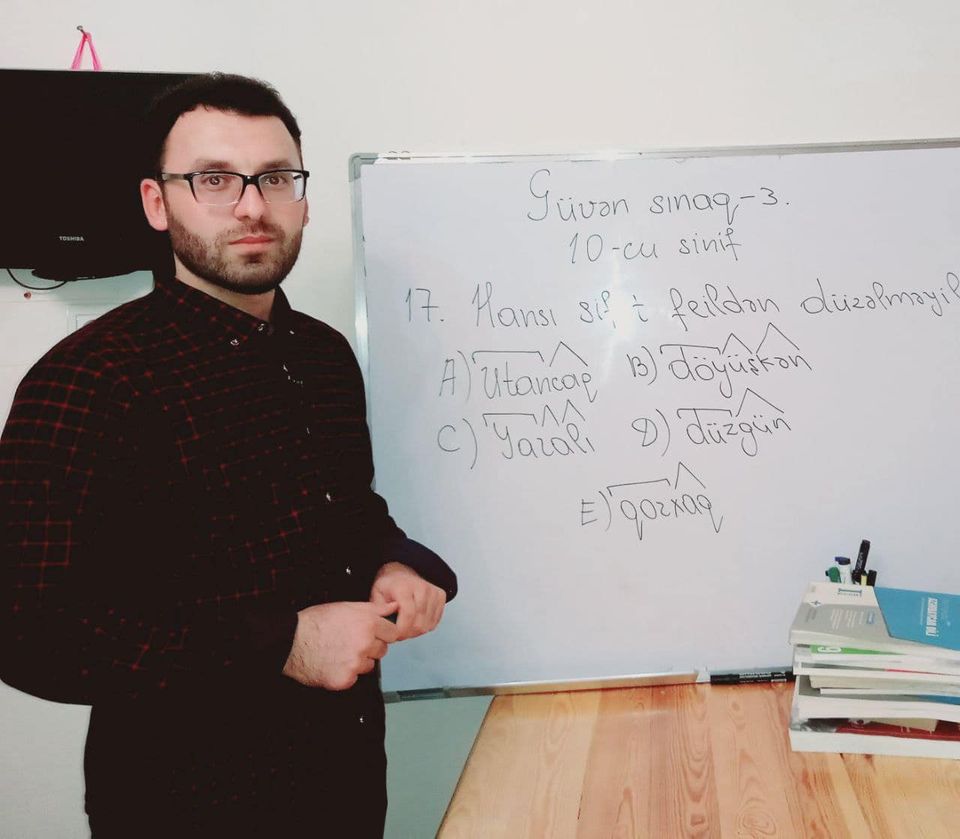 TOSHIBA
Güvən sınaq-3.
10-cu sinif
17. Hansı sifət feildən düzəlməyib
A) Utancaq B) döyüşkən
C) Yaralı D) düzgün
E) qorxaq
AZƏRBAYCAN DİLİ